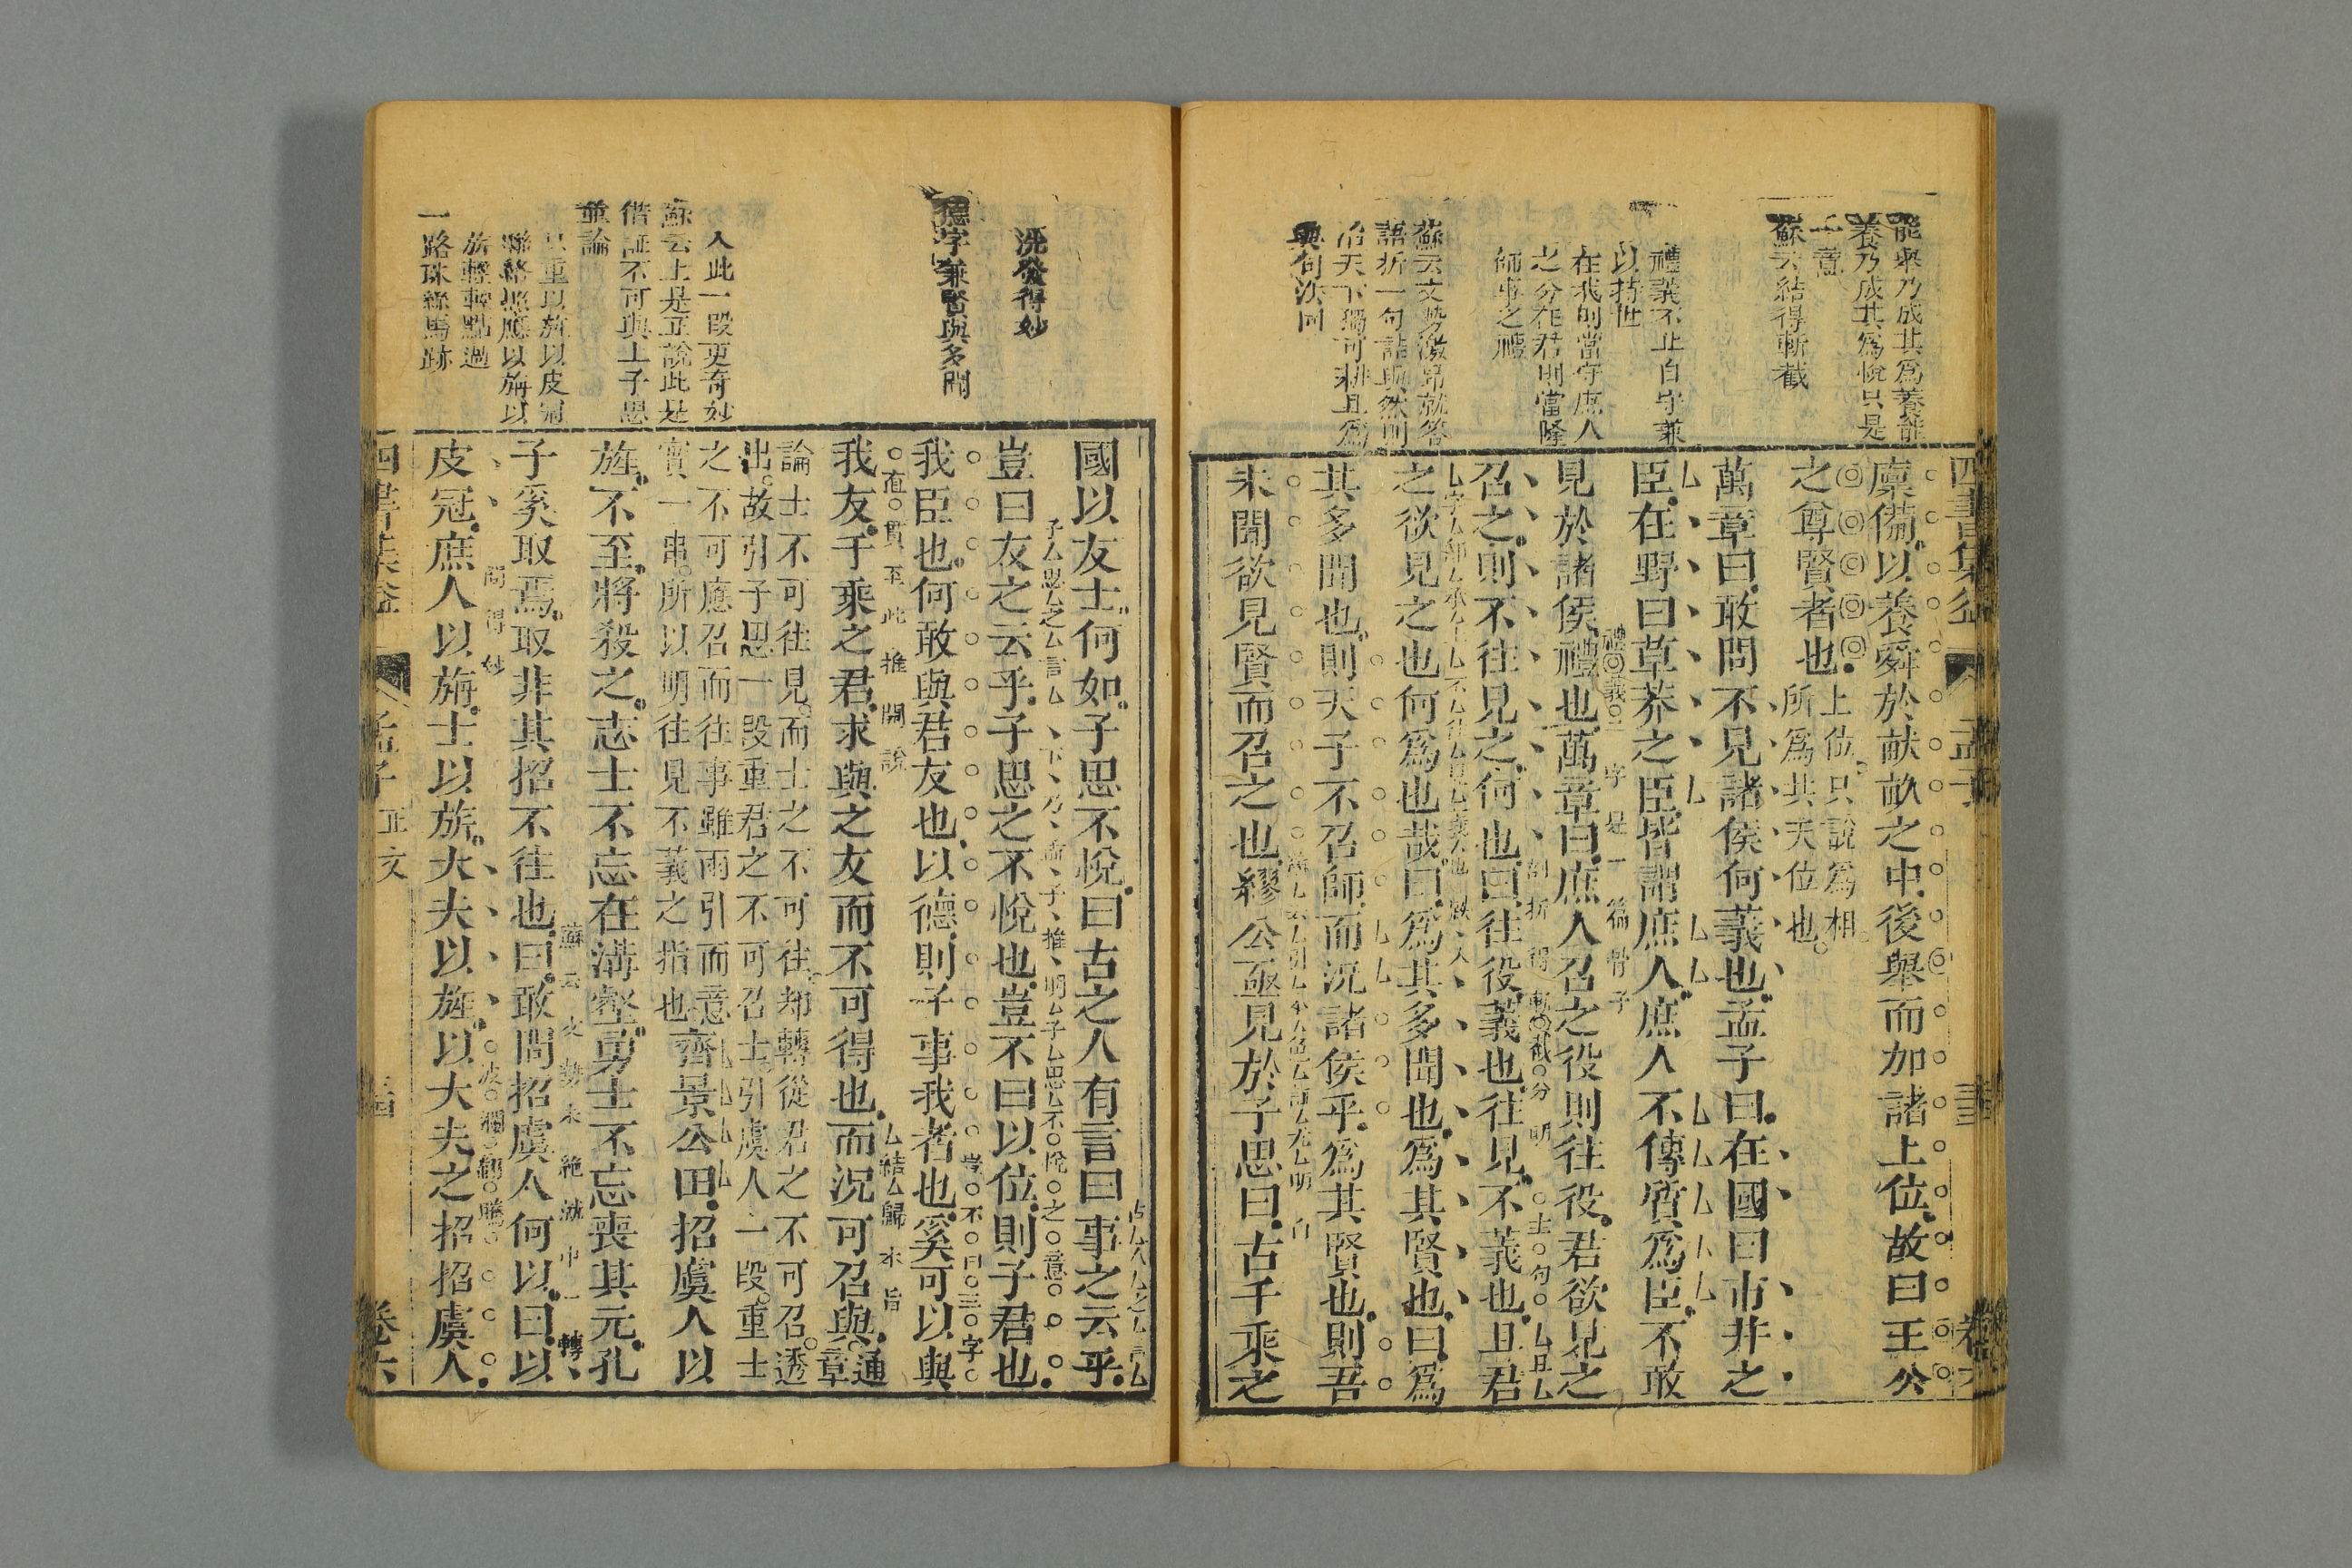 能舉乃成其為養能
養乃成其為悅只是
一意
蘇云結得斬截
禮義不止自守兼
以持世
在我則當守庶人
之分在君則當隆
師事之禮
蘇云文勢激昂就答
語折一句詰與然則
治天下獨可耕且為
與句法同
廩備以養舜於畎畝之中後舉而加諸上位故曰王公
之尊賢者也
上位只說為相
所為共天位也
萬章曰敢問不見諸侯何義也孟子曰在國曰市井之
臣在野曰草莽之臣皆謂庶人庶人不傳質為臣不敢
禮義二字是一篇骨子
見於諸侯禮也萬章曰庶人召之役則往役君欲見之
剖折得斬截分明
士句
且
召之則不往見之何也曰往役義也往見不義也且君
之欲見之也何為也哉曰為其多聞也為其賢也曰為
其多聞也則天子不召師而況諸侯乎為其賢也則吾
未聞欲見賢而召之也繆公亟見於子思曰古千乘之
四書集益
孟子
卷六
洗發得妙
德字兼賢與多聞
入此一段更奇妙
蘇云上是正說此是
借証不可與上子思
並論
只重以旌以皮冠
聯絡照應以旃以
旂輕輕點過
一路珠絲馬跡
國以友士何如子思不悅曰古之人有言曰事之云乎
豈曰友之云乎子思之不悅也豈不曰以位則子君也
我臣也何敢與君友也以德則子事我者也奚可以與
直貫至此推開說
結歸本旨
我友千乘之君求與之友而不可得也而況可召與
通
章
論士不可往見而士之不可往却轉從君之不可召透
出故引子思一段重君之不可召士引虞人一段重士
之不可應召而往事雖兩引而意
實一串所以明往見不義之指也
齊景公田招虞人以
旌不至將殺之志士不忘在溝壑勇士不忘喪其元孔
蘇云文勢未絕激中一轉
子奚取焉取非其招不往也曰敢問招虞人何以曰以
問得妙
波瀾翻騰
皮冠庶人以旃士以旂大夫以旌以大夫之招招虞人
四書集益
孟子
正文
卷六